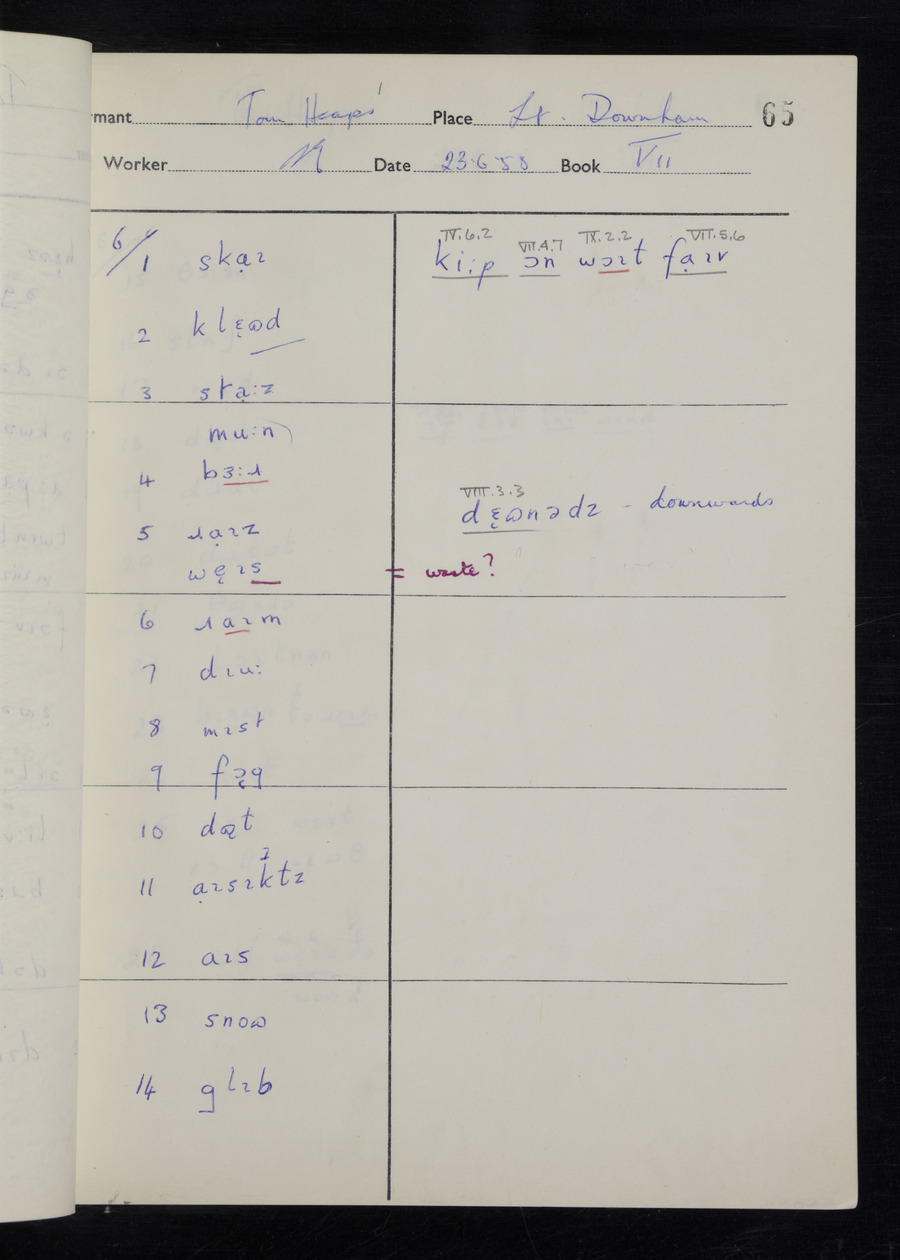 rmant Tom Heaps Place Lt. Downham 65
Worker N Date 23.6.58 Book VII
6/1 skạɪ
IV.6.2 VII.4.7 IX.2.2 VII.5.6
ki:p ɔn wɔɪt fạɪv
2 klę​ɷd
3 stạ:z
mu:n
4 bɜ:ɹ
VIII.3.3
dęɷnədz - downwards
5 ɹạɪz
węɪs = waste?
6 ɹaɪm
7 dɪu:
8 mɪst
9 fɔ̨g
10 dɑt
11 ạɪsɪktz
ɪ
12 aɪs
13 snoɷ
14 glɪb